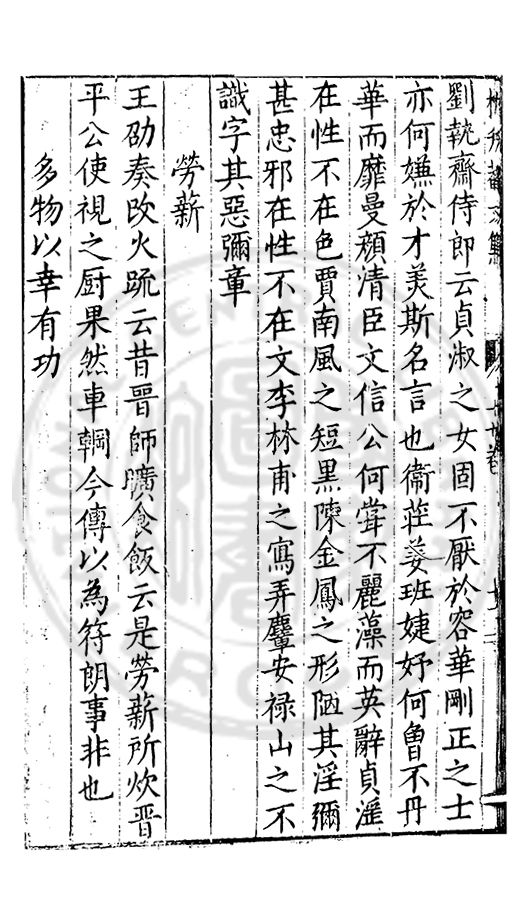 劉執齋侍郎云貞淑之女固不厭於容華剛正之士
亦何嫌於才美斯名言也衞莊姜班婕妤何曾不丹
華而靡曼顔清臣文信公何甞不麗藻而英辭貞滛
在性不在色賈南風之短黒陳金鳳之形陋其淫彌
甚忠邪在性不在文李林甫之寫弄麞安禄山之不
識字其惡彌章
勞薪
王劭奏改火疏云昔晋師曠食飯云是勞薪所炊晋
平公使視之厨果然車輞今傳以為符朗事非也
多物以幸有功